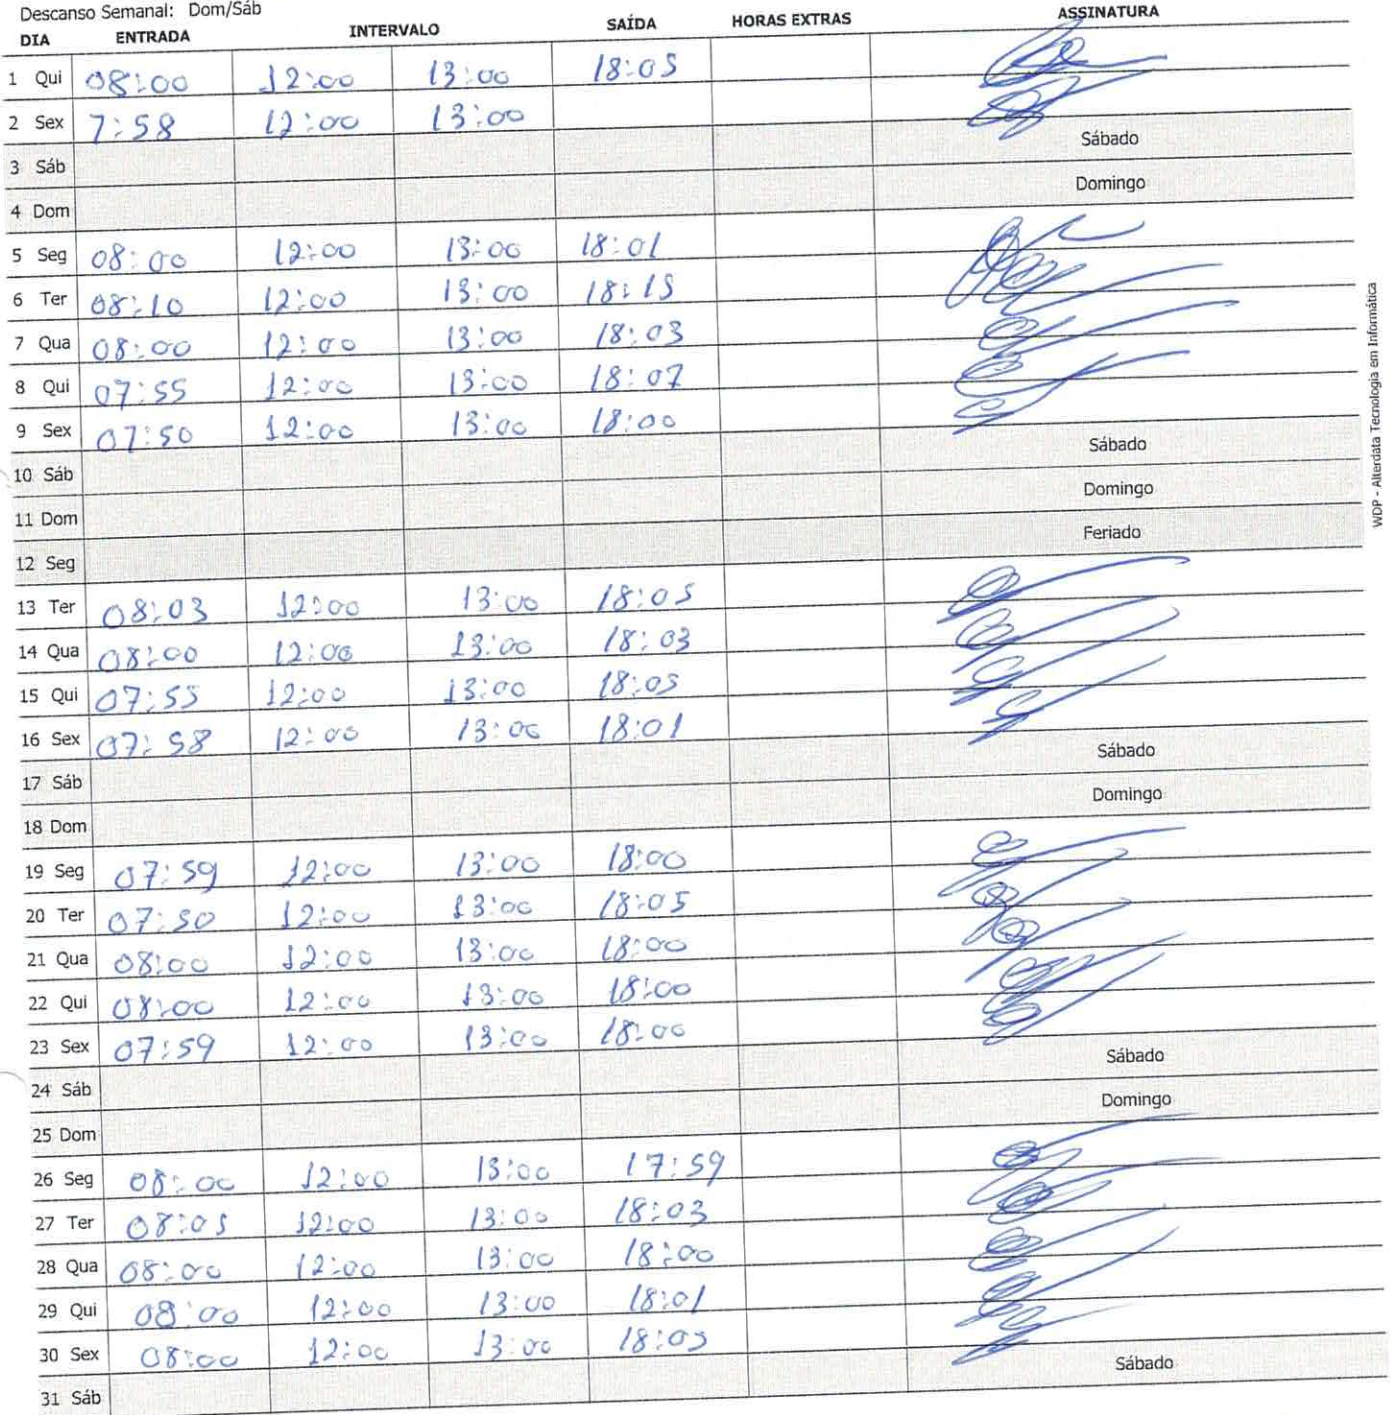 Descanso Semanal: Dom/Sáb
DIA ENTRADA INTERVALO SAÍDA HORAS EXTRAS ASSINATURA
1 Qui 08:00 12:00 13:00 18:05
2 Sex 7:58 12:00 13:00
3 Sáb Sábado
4 Dom Domingo
5 Seg 08:00 12:00 13:00 18:01
6 Ter 08:10 12:00 13:00 18:15
7 Qua 08:00 12:00 13:00 18:03
8 Qui 07:55 12:00 13:00 18:07
9 Sex 07:50 12:00 13:00 18:00
10 Sáb Sábado
11 Dom Domingo
12 Seg Feriado
13 Ter 08:03 12:00 13:00 18:05
14 Qua 08:00 12:00 13:00 18:03
15 Qui 07:55 12:00 13:00 18:05
16 Sex 07:58 12:00 13:00 18:01
17 Sáb Sábado
18 Dom Domingo
19 Seg 07:59 12:00 13:00 18:00
20 Ter 07:50 12:00 13:00 18:05
21 Qua 08:00 12:00 13:00 18:00
22 Qui 08:00 12:00 13:00 18:00
23 Sex 07:59 12:00 13:00 18:00
24 Sáb Sábado
25 Dom Domingo
26 Seg 08:00 12:00 13:00 17:59
27 Ter 08:05 12:00 13:00 18:03
28 Qua 08:00 12:00 13:00 18:00
29 Qui 08:00 12:00 13:00 18:01
30 Sex 08:00 12:00 13:00 18:05
31 Sáb Sábado
WDP - Alterdata Tecnologia em Informática